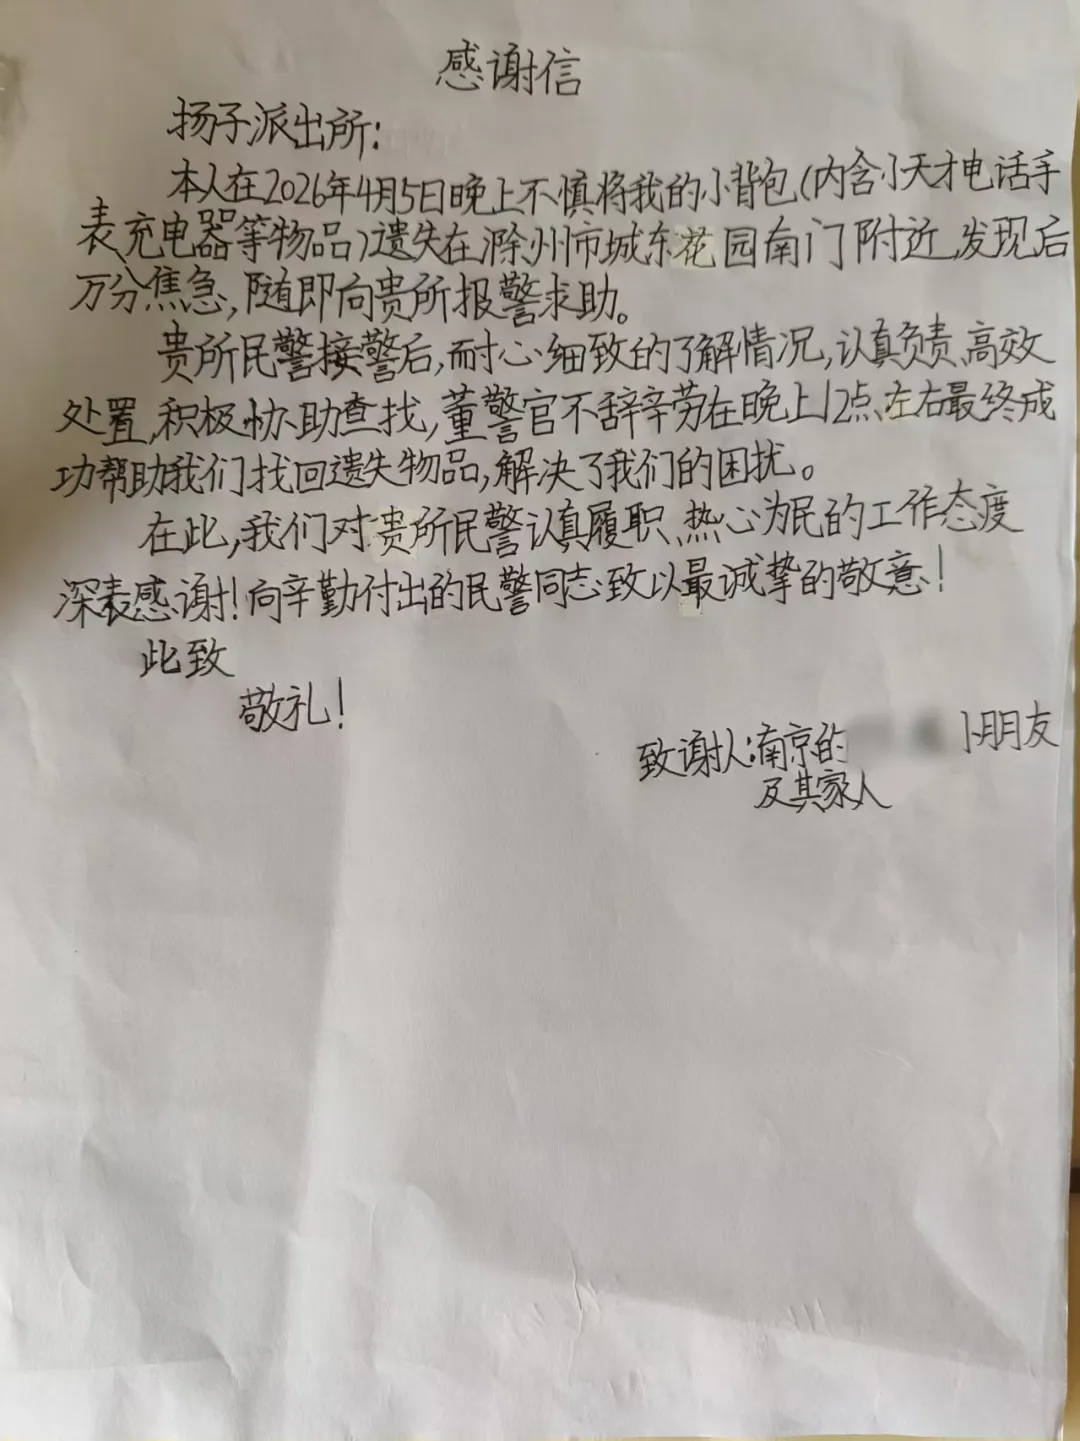 感谢信
扬子派出所:
本人在2026年4月5日晚上不慎将我的小背包(内含小天才电话手
表充电器等物品)遗失在滁州市城东花园南门附近,发现后
万分焦急,随即向贵所报警求助。
贵所民警接警后,耐心细致的了解情况,认真负责、高效
处置,积极协助查找,董警官不辞辛劳在晚上12点左右最终成
功帮助我们找回遗失物品,解决了我们的困扰。
在此,我们对贵所民警认真履职、热心为民的工作态度
深表感谢!向辛勤付出的民警同志致以最诚挚的敬意!
此致
敬礼!
致谢人:南京的 小朋友
及其家人